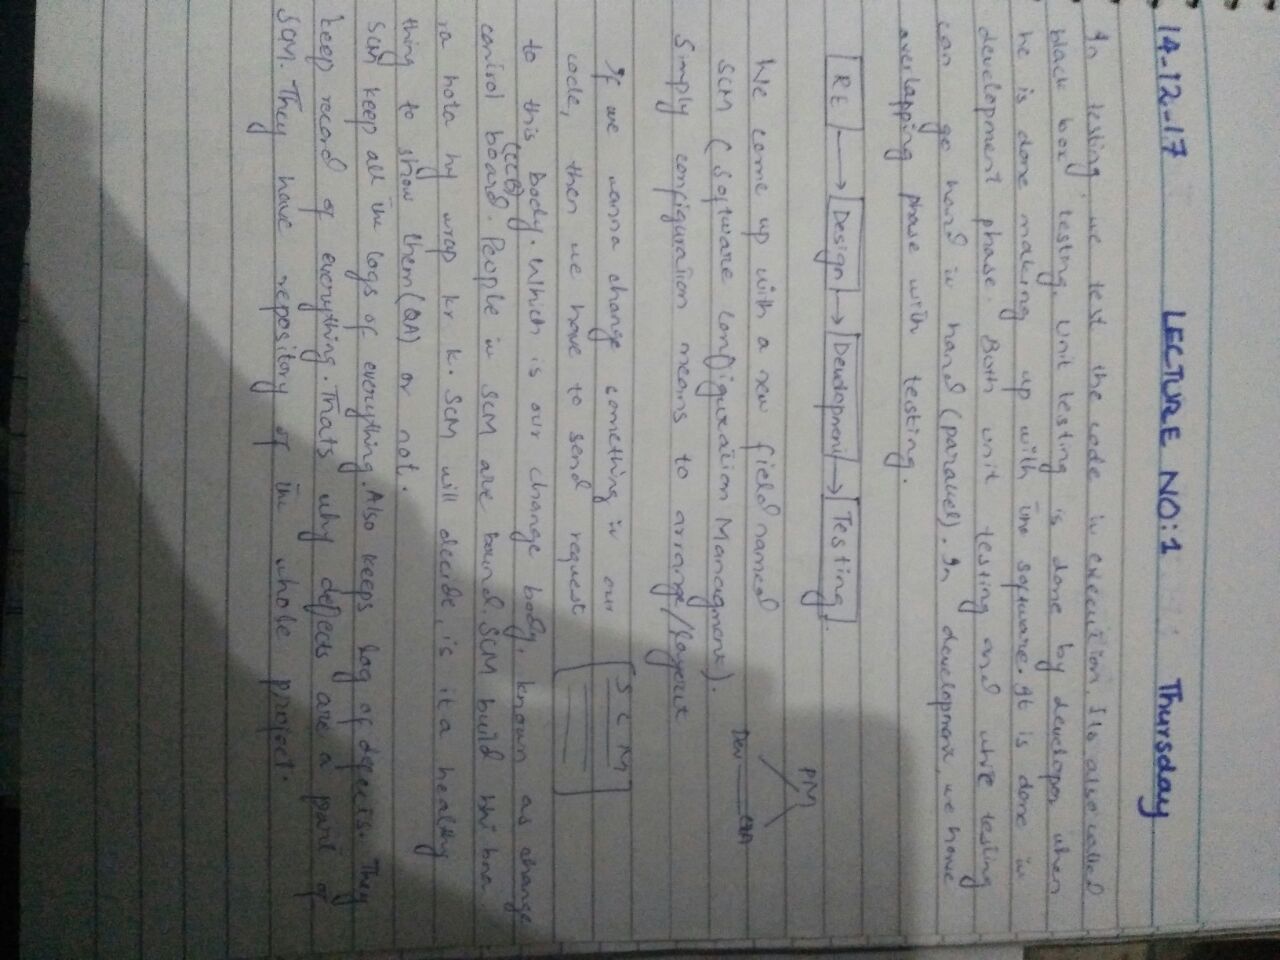 14-12-17 LECTURE NO:1 Thursday
In testing, we test the code in execution. Its also called
black box testing. Unit testing is done by developer when
he is done making up with the software. It is done in
development phase. Both unit testing and white testing
can go hand in hand (parallel). In development, we have
overlapping phase with testing.
RE → Design → Development → Testing.
PM
Dev QA
We come up with a new field named
SCM (Software Configuration Managment).
Simply configuration means to arrange/layout
If we wanna change something in our
code, then we have to send request
SCM
to this body. Which is our change body, known as change
(CCB)
control board. People in SCM are bound. SCM build bhi bna
ra hota hy wrap kr k. SCM will decide, is it a healthy
thing to show them (QA) or not.
SCM keep all the logs of everything. Also keeps log of defects. They
keep record of everything. Thats why deffects are a part of
SCM. They have repository of the whole project.